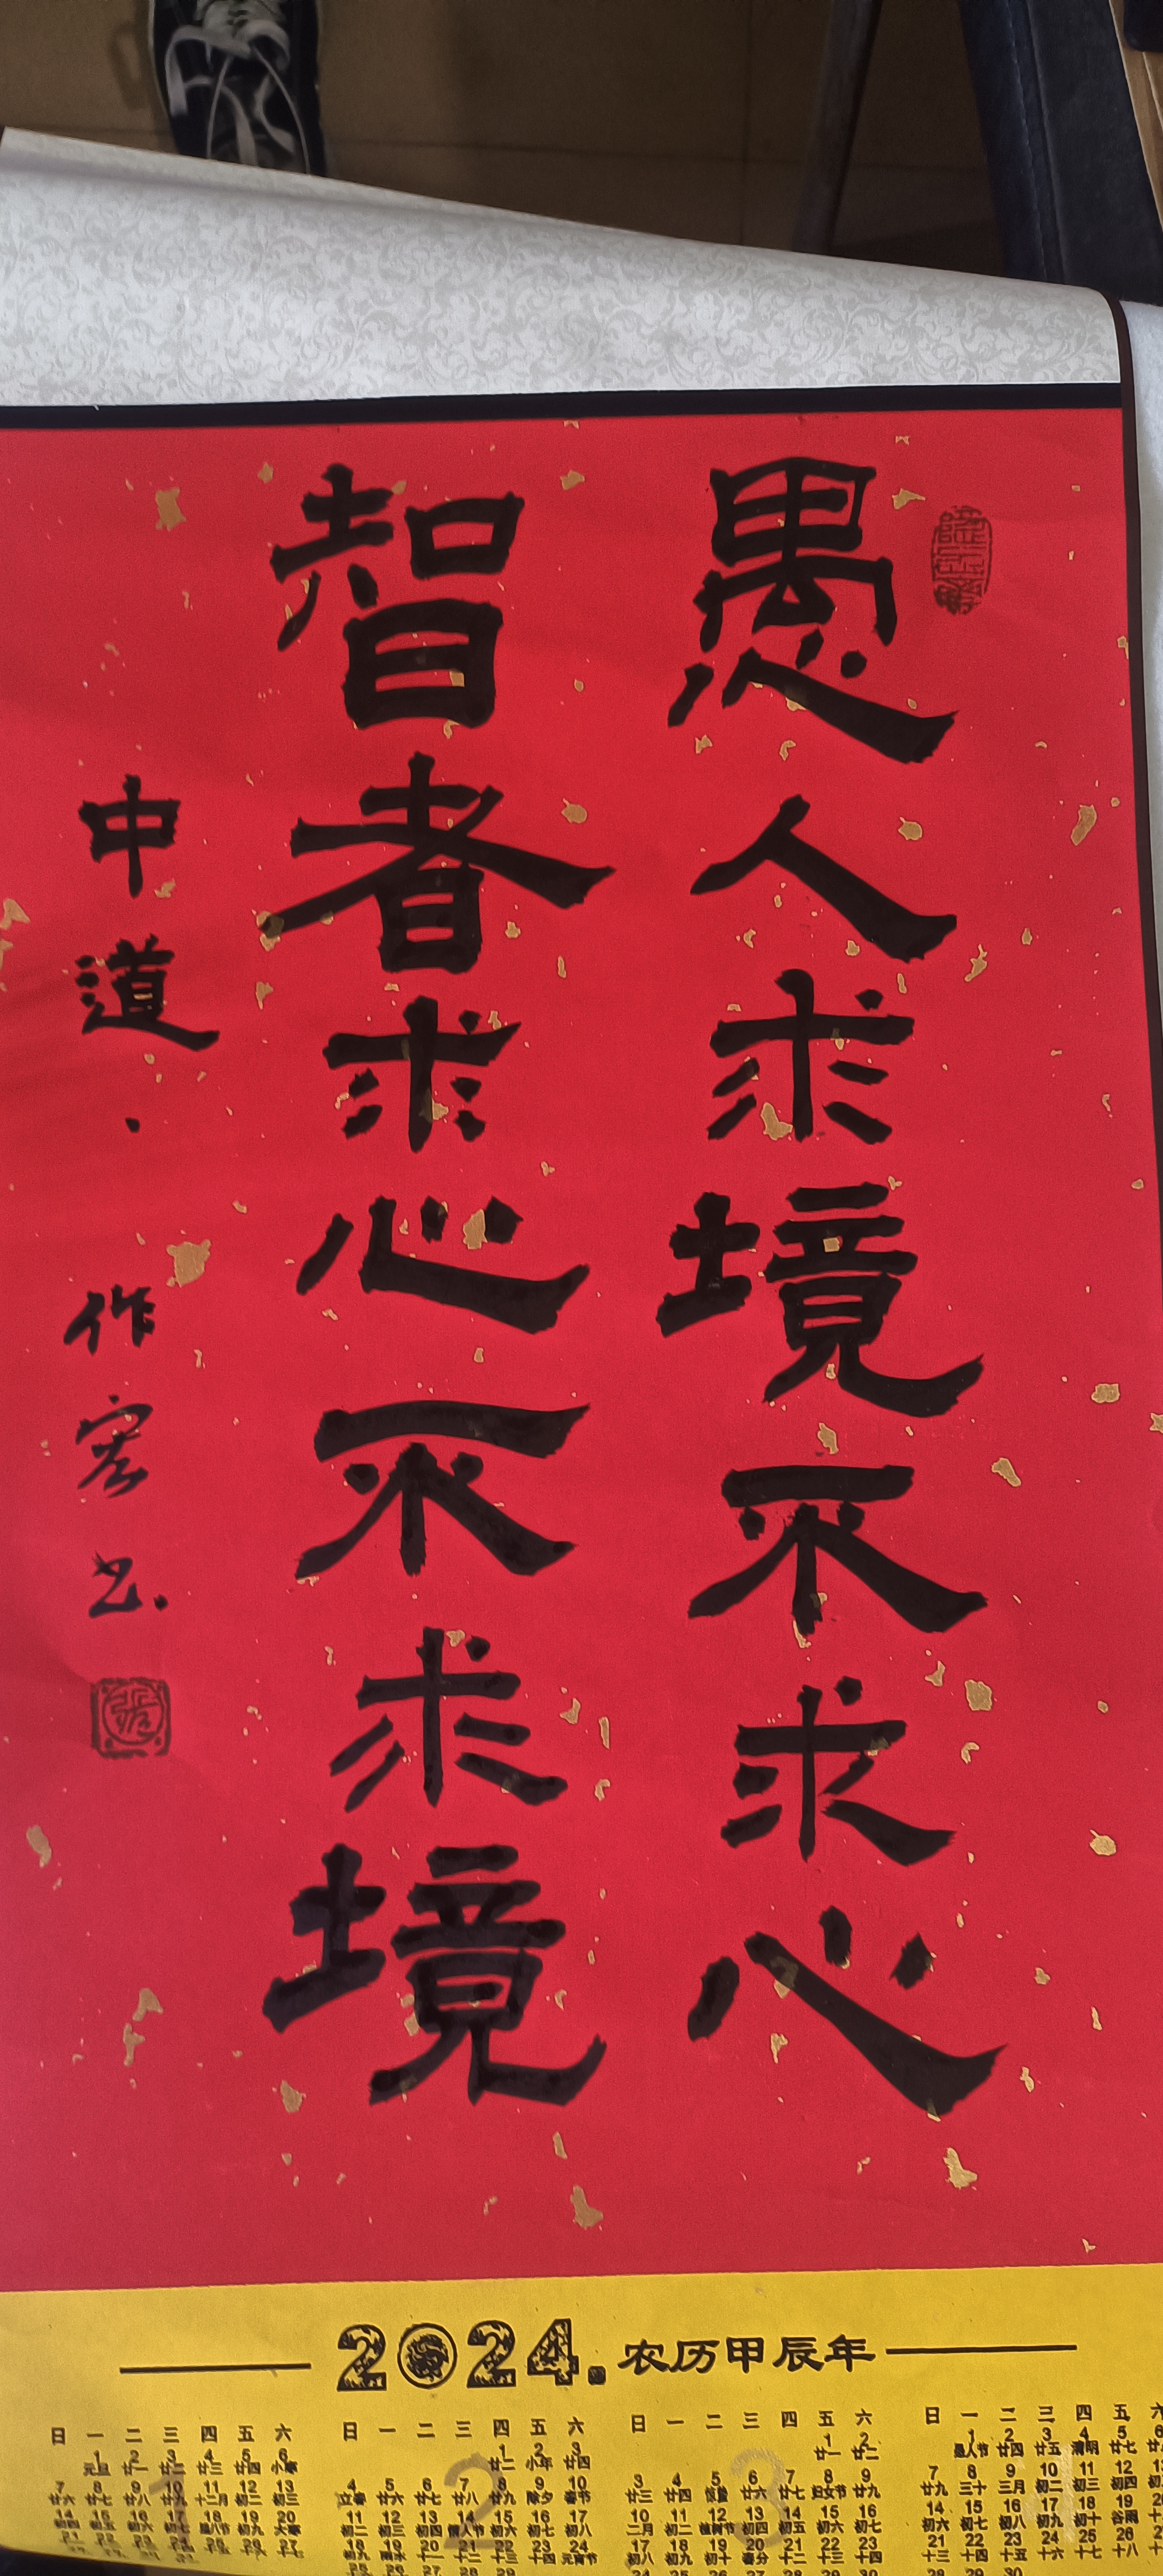 愚人求境不求心
智者求心不求境
中道.
作宏书.
2024.农历甲辰年
日 一 二 三 四 五 六
1 2 3 4 5 6
元旦 廿一 廿二 廿三 廿四 小寒
7 8 9 10 11 12 13
廿六 廿七 廿八 廿九 十二月 初二 初三
14 15 16 17 18 19 20
初四 初五 初六 初七 腊八节 初九 大寒
21 22 23 24 25 26 27
日 一 二 三 四 五 六
1 2 3
廿二 小年 廿四
4 5 6 7 8 9 10
立春 廿六 廿七 廿八 廿九 除夕 春节
11 12 13 14 15 16 17
初二 初三 初四 情人节 初六 初七 初八
18 19 20 21 22 23 24
初九 雨水 十一 十二 十三 十四 元宵节
25 26 27 28 29
2
日 一 二 三 四 五 六
1 2
廿一 廿二
3 4 5 6 7 8 9
廿三 廿四 惊蛰 廿六 廿七 妇女节 廿九
10 11 12 13 14 15 16
二月 初二 植树节 初四 初五 初六 初七
17 18 19 20 21 22 23
初八 初九 初十 春分 十二 十三 十四
24 25 26 27 28 29 30
3
日 一 二 三 四 五 六
1 2 3 4 5 6
愚人节 廿四 廿五 清明 廿七 廿八
7 8 9 10 11 12
廿九 三十 三月 初二 初三 初四
14 15 16 17 18 19
初六 初七 初八 初九 初十 谷雨
21 22 23 24 25 26
十三 十四 十五 十六 十七 十八
28 29 30